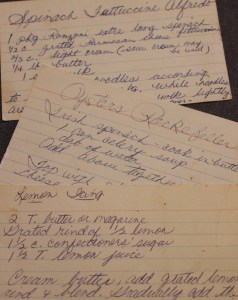 Spinach Fettuccine Alfredo
1 pkg Ronzoni extra long spinach fettuccine
1/2 c. grated Parmesan cheese
1/2 c. light cream (sour cream may be used)
1/4 lb butter
noodles according
to while noodles
lightly
Oysters Rockefeller
Fresh spinach - cook in butter
1 can celery soup
of water
Add above together
Top with
cheese
Lemon Icing
2 T. butter or magarine
Grated rind of 1/2 lemon
1 1/2 c. confectioners sugar
1 1/2 T. lemon juice
Cream butter, add grated lemon
rind & blend. Gradually add the